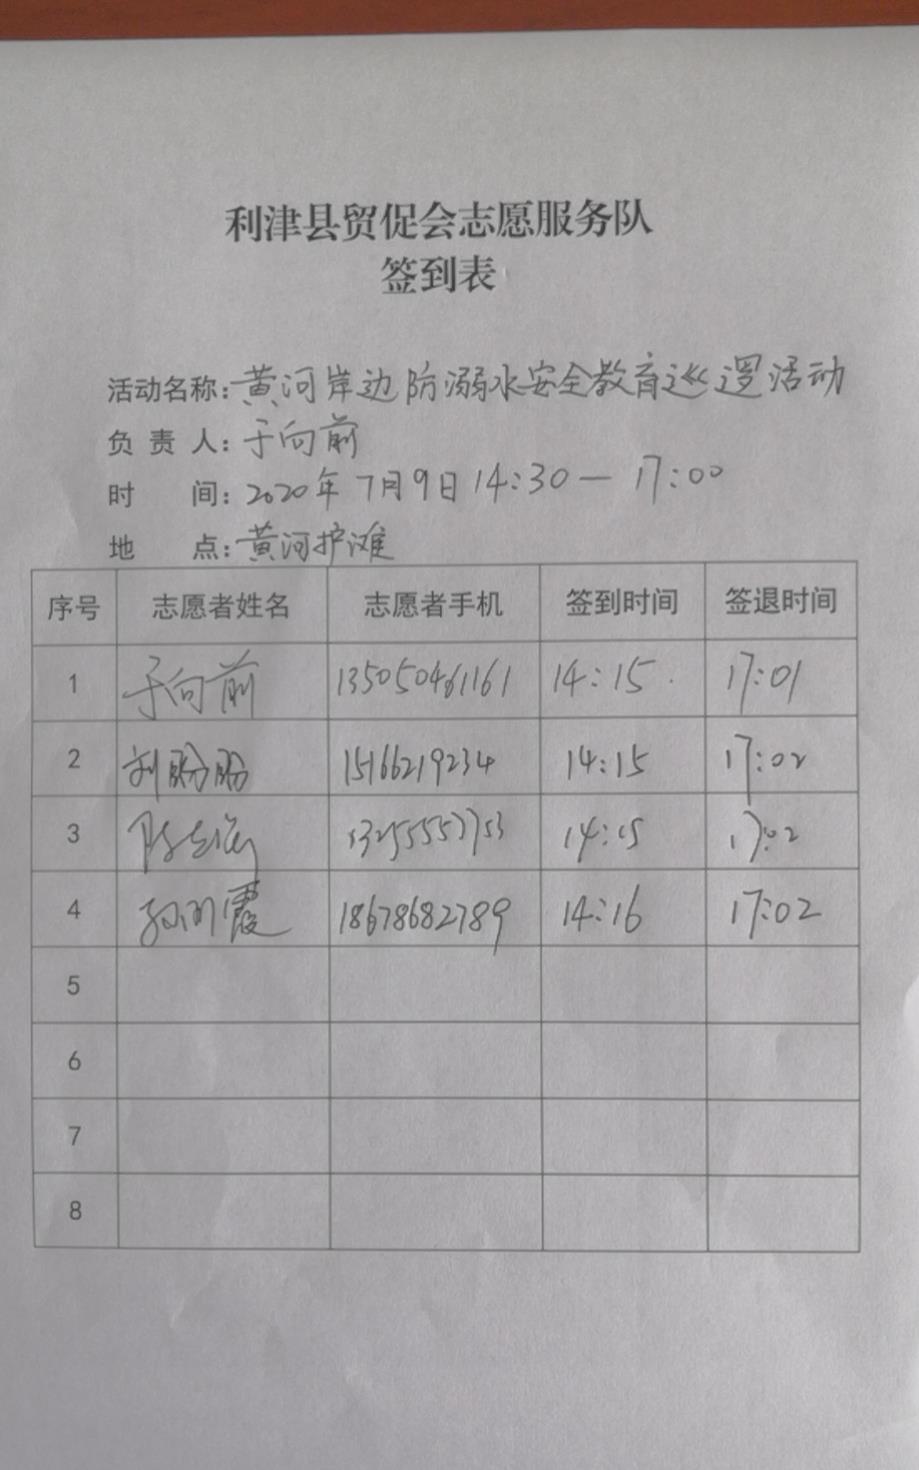 利津县贸促会志愿服务队
签到表
活动名称:黄河岸边防溺水安全教育巡逻活动
负责人:于向前
时间:2020年7月9日14:30—17:00
地点:黄河护滩
序号 志愿者姓名 志愿者手机 签到时间 签退时间
1 于向前 13505046161 14:15 17:01
2 刘盼盼 15166219234 14:15 17:02
3 14:15 17:02
4 18678682789 14:16 17:02
5
6
7
8